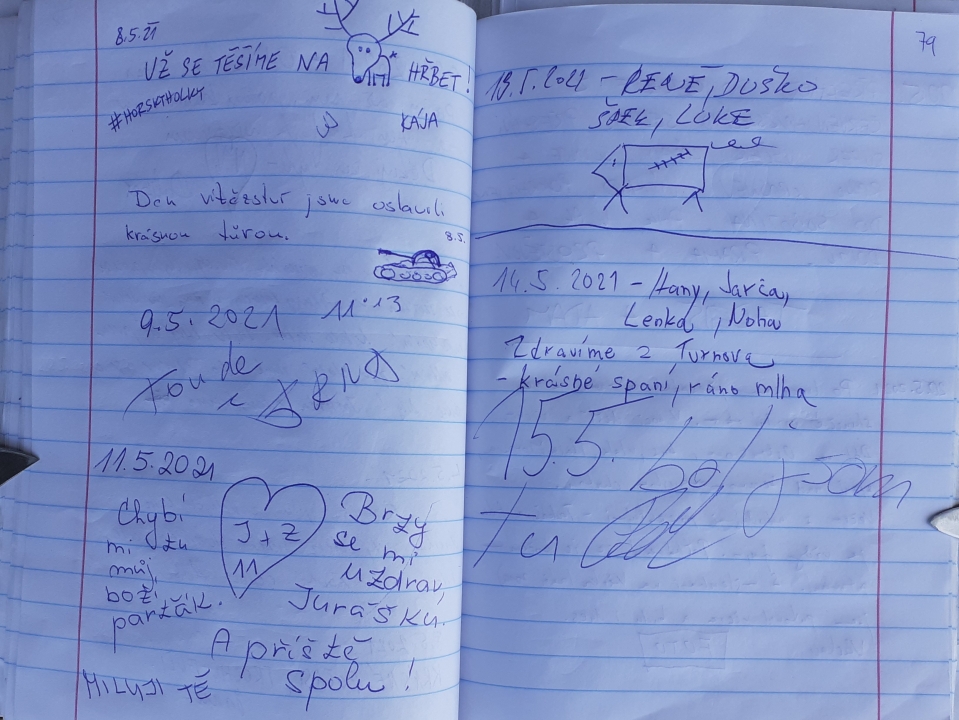 8.5.21
UŽ SE TĚŠÍME NA HŘBET!
#HORSKYHOLKY
KÁJA
Den vítězství jsme oslavili
krásnou túrou.
8.5.
9.5.2021 11:13
11.5.2021
Chybí
mi tu
můj
boží
parťák.
J + Z
11
Brzy
se mi
uzdrav,
Jurášku.
A příště
spolu!
MILUJI TĚ
79
13.5.2021 - RENÉ, DUŠKO
LUKE
14.5.2021 - Hany, Jarča,
Lenka, Noha
Zdravíme z Turnova
- krásné spaní, ráno mlha
15.5. bol jsom
tu